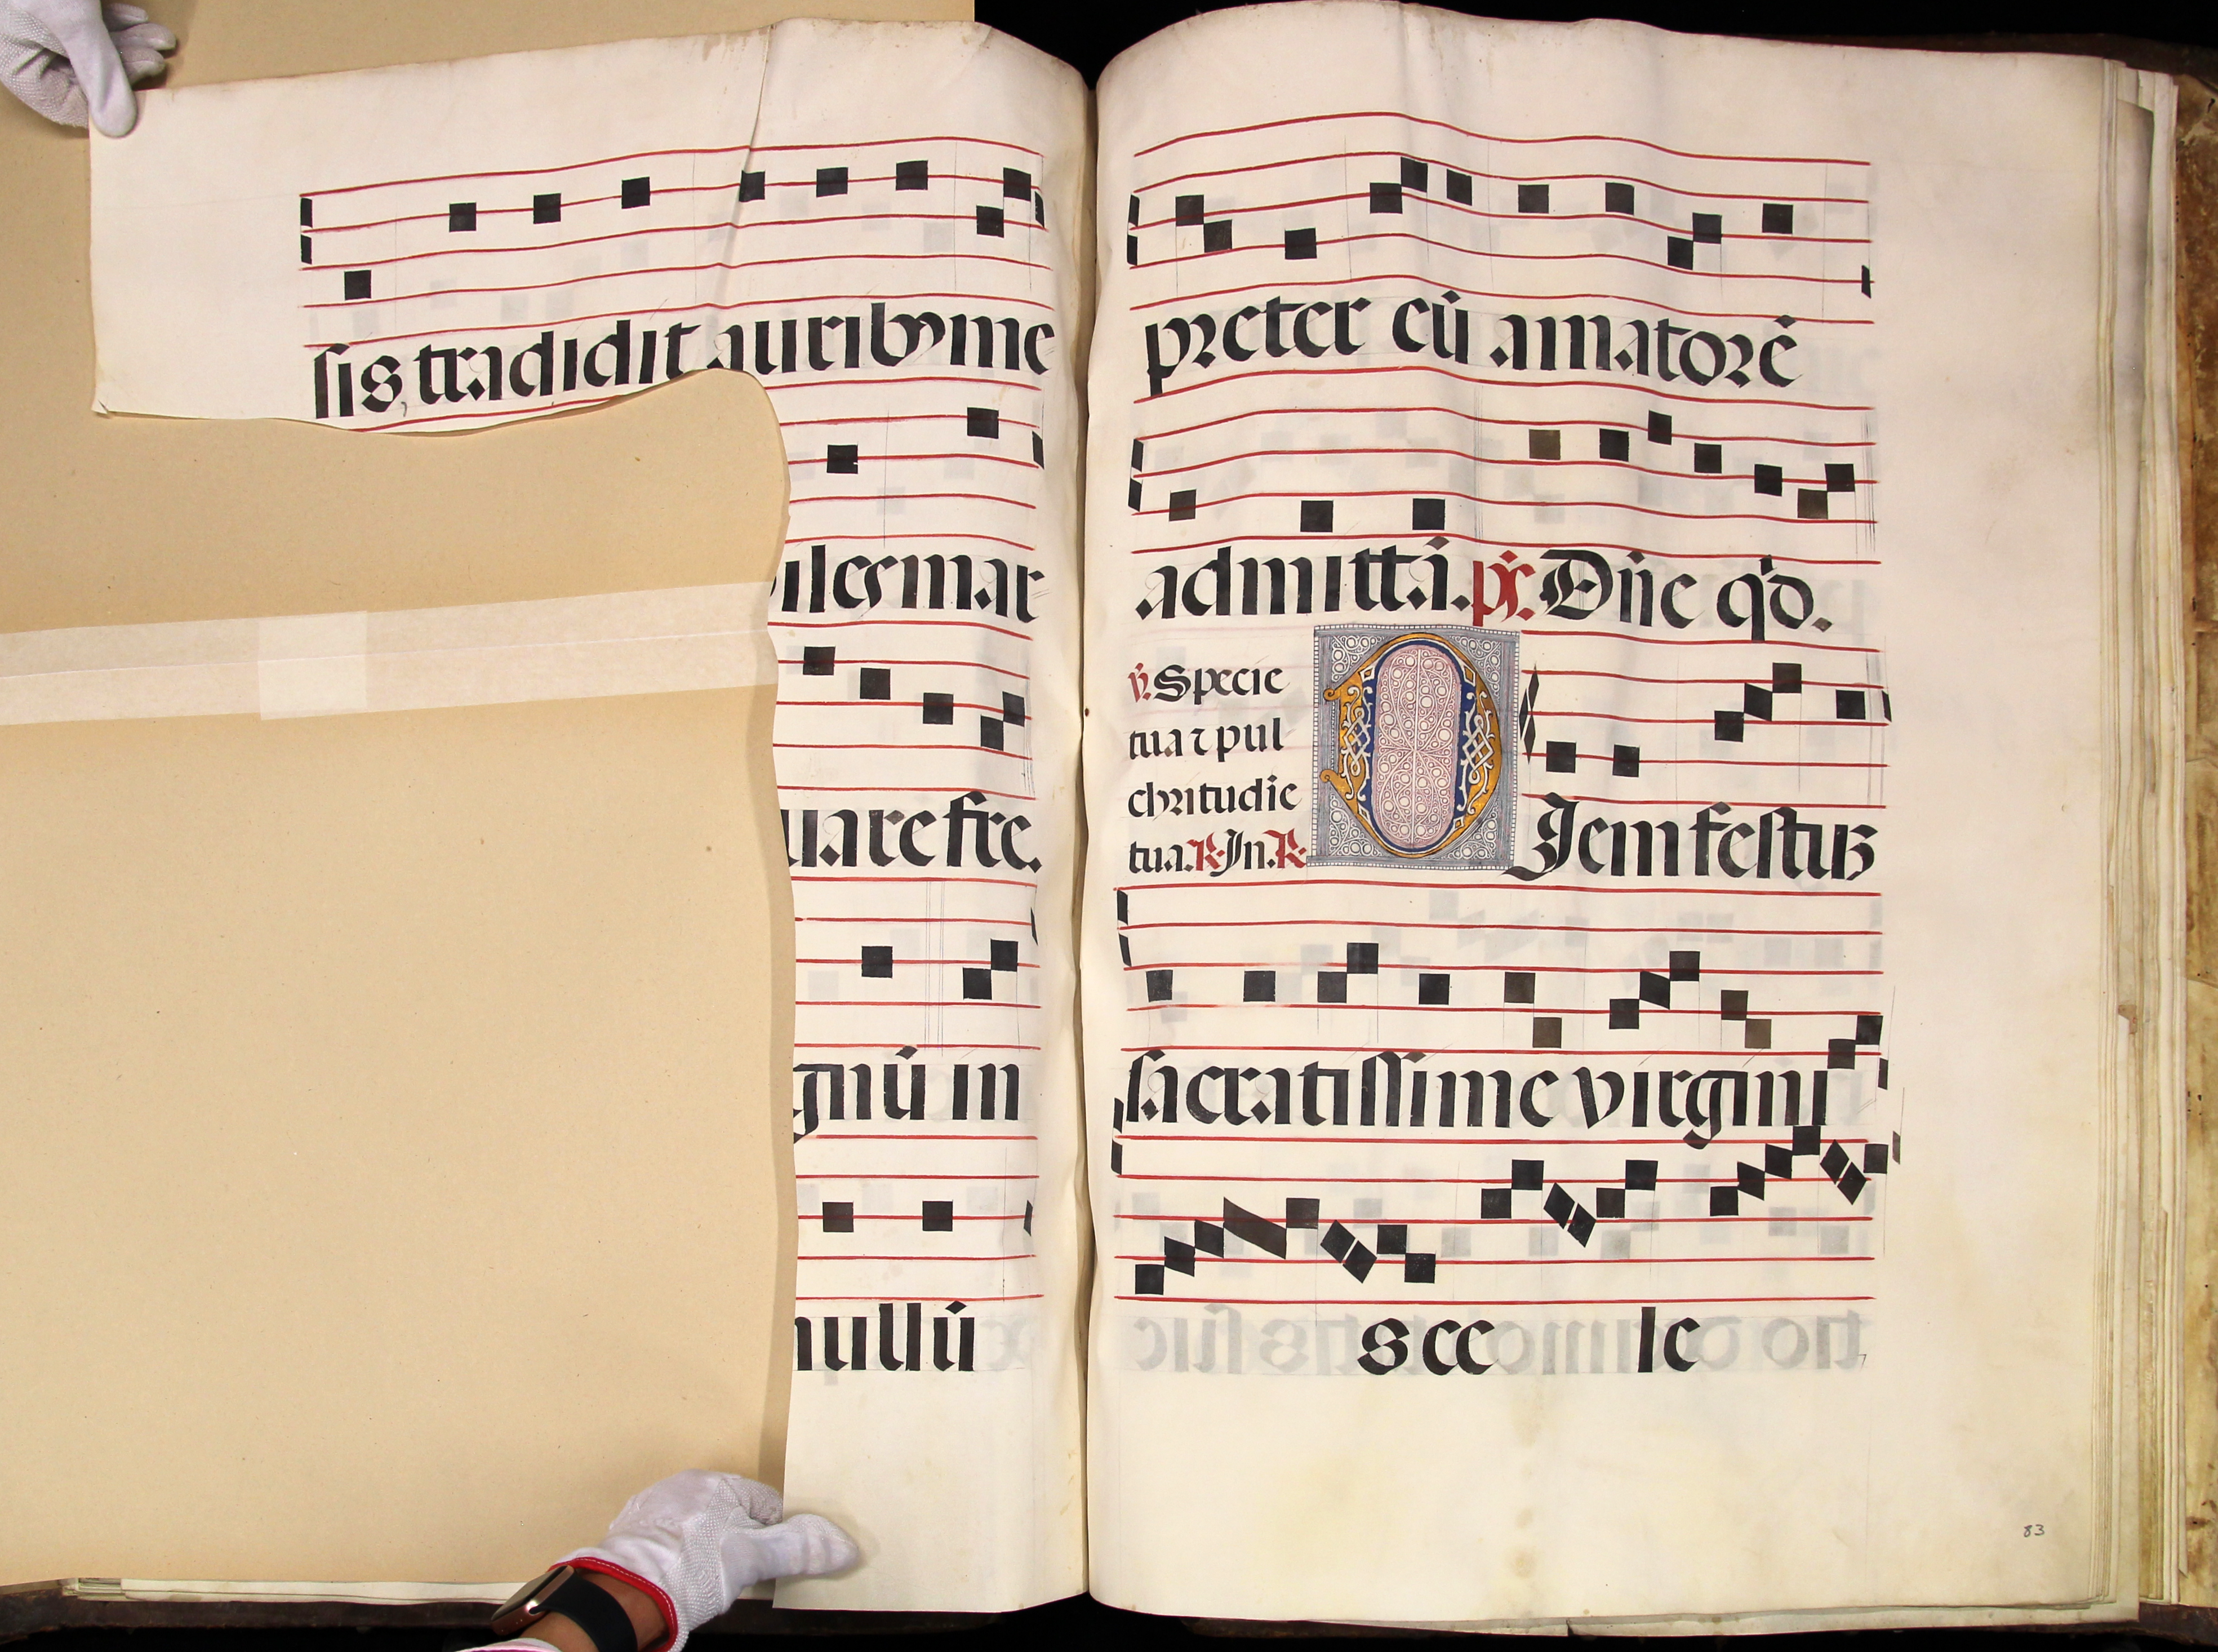 sis tradidit auribꝯ me
ilesmar
uare fre.
gnū in
nullū
preter eū amatorē
admittā. pſ. Dn̄e qͦd.
v̄. Specie
tua ⁊ pul
chritudie
tua. R. In. R
D Iem festuz
sacratissime virgini
s ce le
83